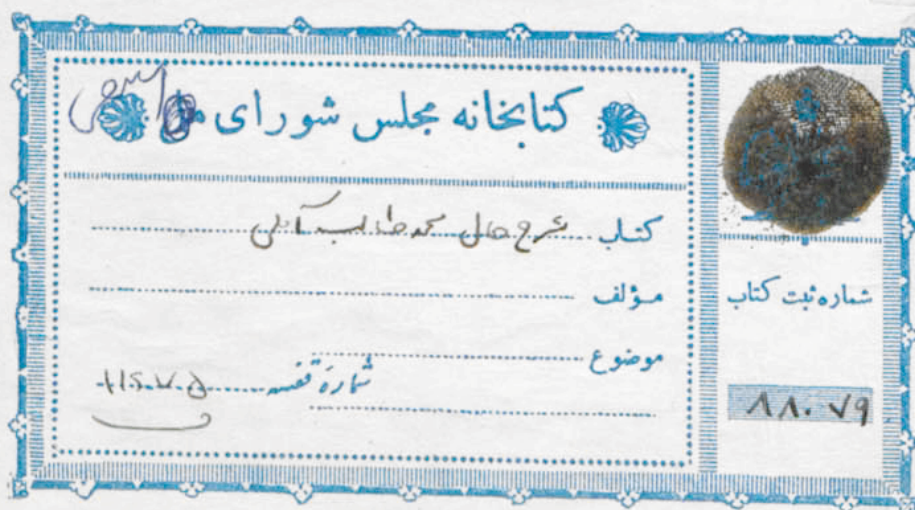 کتابخانه مجلس شورای
کتاب شرح حال محمد طالب آملی
مؤلف
موضوع
شمارهٔ قفسه
شماره ثبت کتاب
۸۸۰۷۹